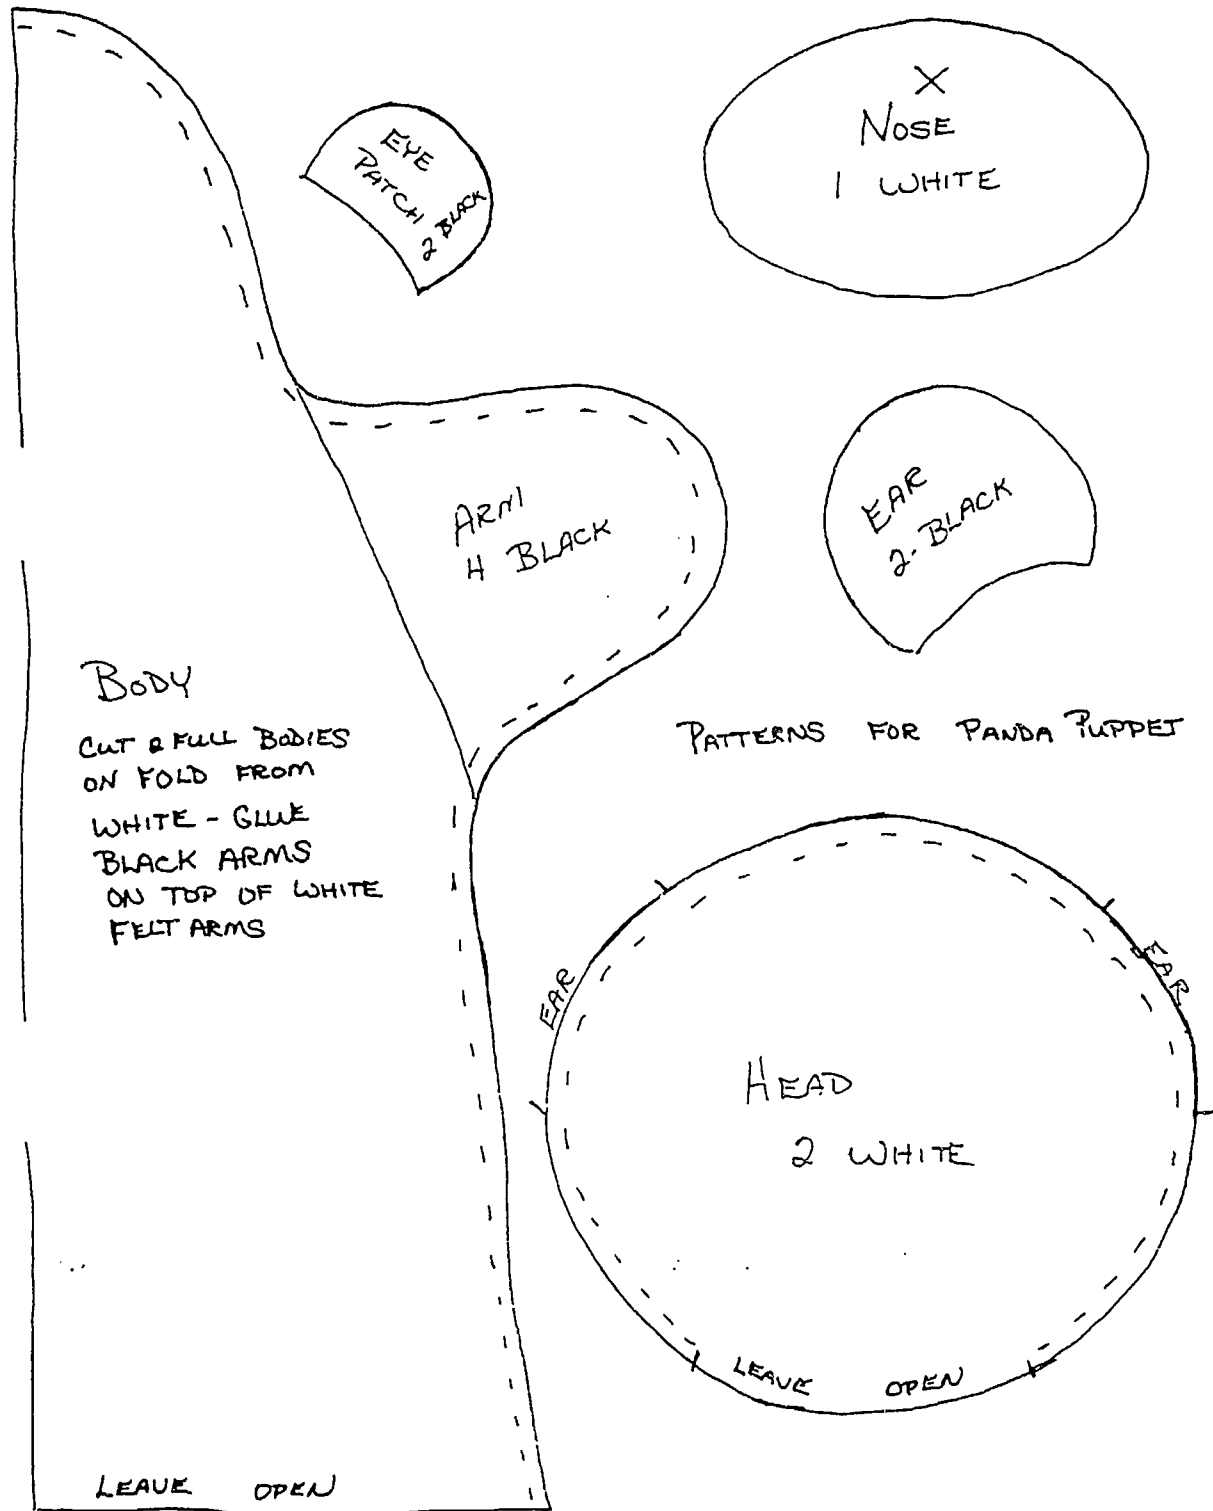 EYE
PATCH
2 BLACK
X
NOSE
1 WHITE
ARM
4 BLACK
EAR
2-BLACK
BODY
CUT 2 FULL BODIES
ON FOLD FROM
WHITE - GLUE
BLACK ARMS
ON TOP OF WHITE
FELT ARMS
PATTERNS FOR PANDA PUPPET
EAR
EAR
HEAD
2 WHITE
LEAVE OPEN
LEAVE OPEN